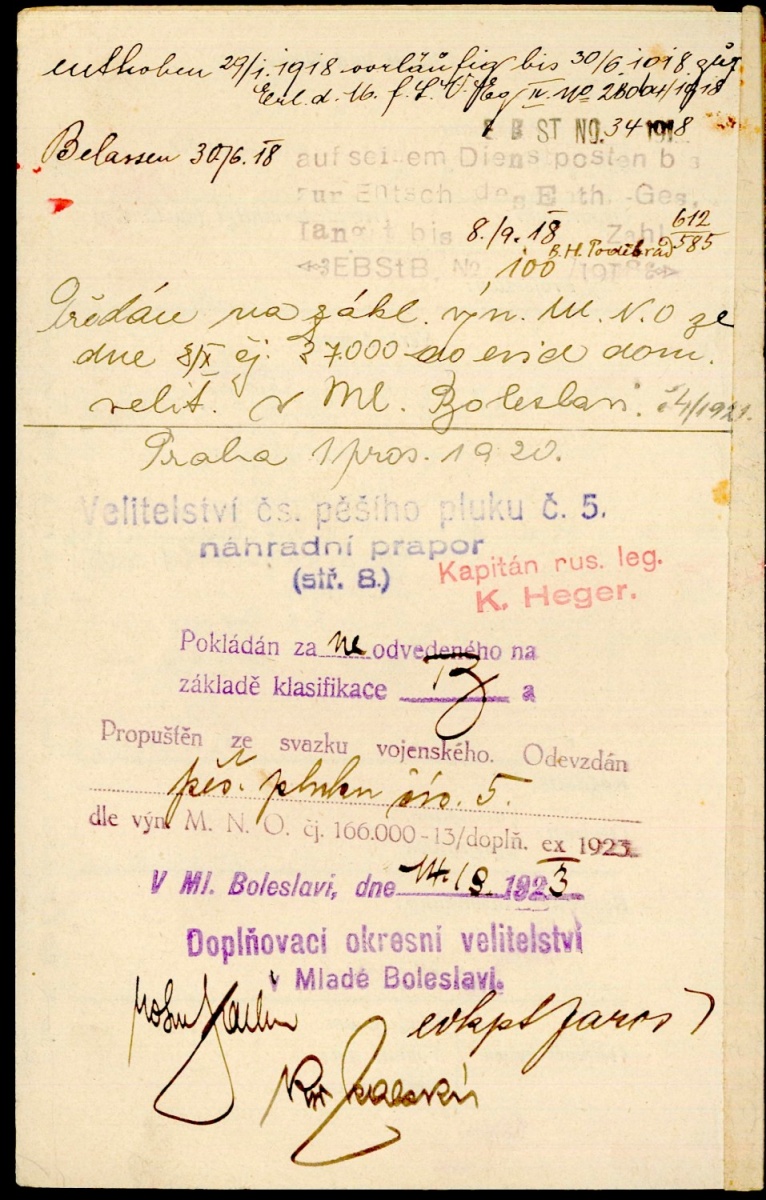 enthoben 29/I. 1918 vorläufig bis 30/6 1918 zuf.
Erl. d. M. f. L. V. Dep IV. No 2800/1918
E B ST NO. 34 1918
Belassen 30/6. 18
auf seinem Dienstposten bis
zur Entsch. des Enth.-Ges.
längst bis 8./9. 18 Zahl 612/585
B. H. Poděbrad
EBStB. No 100 /1918
Předán na zákl. výn. M. N. O ze
dne 8/X čj. 27.000 do evid dom.
velit. v Ml. Boleslavi. 4/1921.
Praha 1 pros. 1920.
Velitelství čs. pěšího pluku č. 5.
náhradní prapor
(stř. 8.)
Kapitán rus. leg.
K. Heger.
Pokládán za ne odvedeného na
základě klasifikace B a
Propuštěn ze svazku vojenského. Odevzdán
pěš. pluku čís. 5.
dle výn. M. N. O. čj. 166.000-13/doplň. ex 1923.
V Ml. Boleslavi, dne 14./9. 1923
Doplňovací okresní velitelství
v Mladé Boleslavi.
evkpt Jaros